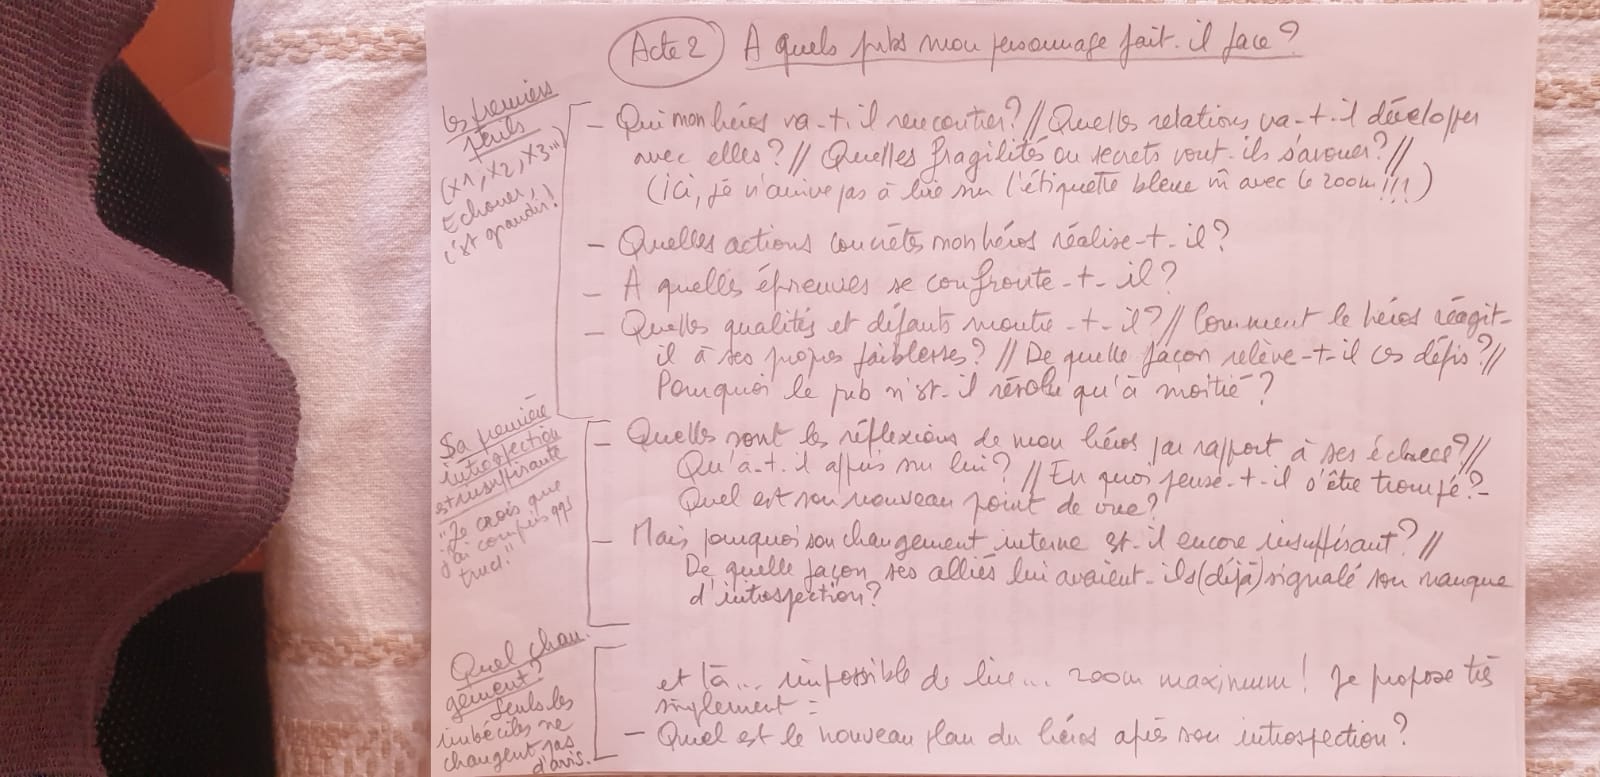 Acte 2 A quels pbs mon personnage fait-il face?
Les premiers
périls
(x1, x2, x3...)
Echouer,
c'est grandir!
- Qui mon héros va-t-il rencontrer? // Quelles relations va-t-il développer
avec elles? // Quelles fragilités ou secrets vont-ils s'avouer? //
(ici, je n'arrive pas à lire sur l'étiquette bleue m̄ avec le zoom!!!)
- Quelles actions concrètes mon héros réalise-t-il?
- A quelles épreuves se confronte-t-il?
- Quelles qualités et défauts montre-t-il? // Comment le héros réagit-
il à ses propres faiblesses? // De quelle façon relève-t-il ces défis? //
Pourquoi le pb n'est-il résolu qu'à moitié?
Sa première
introspection
est insuffisante
"Je crois que
j'ai compris qq
truc!"
- Quelles sont les réflexions de mon héros par rapport à ses échecs? //
Qu'a-t-il appris sur lui? // En quoi pense-t-il s'être trompé? -
Quel est son nouveau point de vue?
- Mais pourquoi son changement interne est-il encore insuffisant? //
De quelle façon ses alliés lui avaient-ils (déjà) signalé son manque
d'introspection?
Quel chan-
gement?
Seuls les
imbéciles ne
changent pas
d'avis.
et là... impossible de lire... zoom maximum! Je propose très
simplement:
- Quel est le nouveau plan du héros après son introspection?